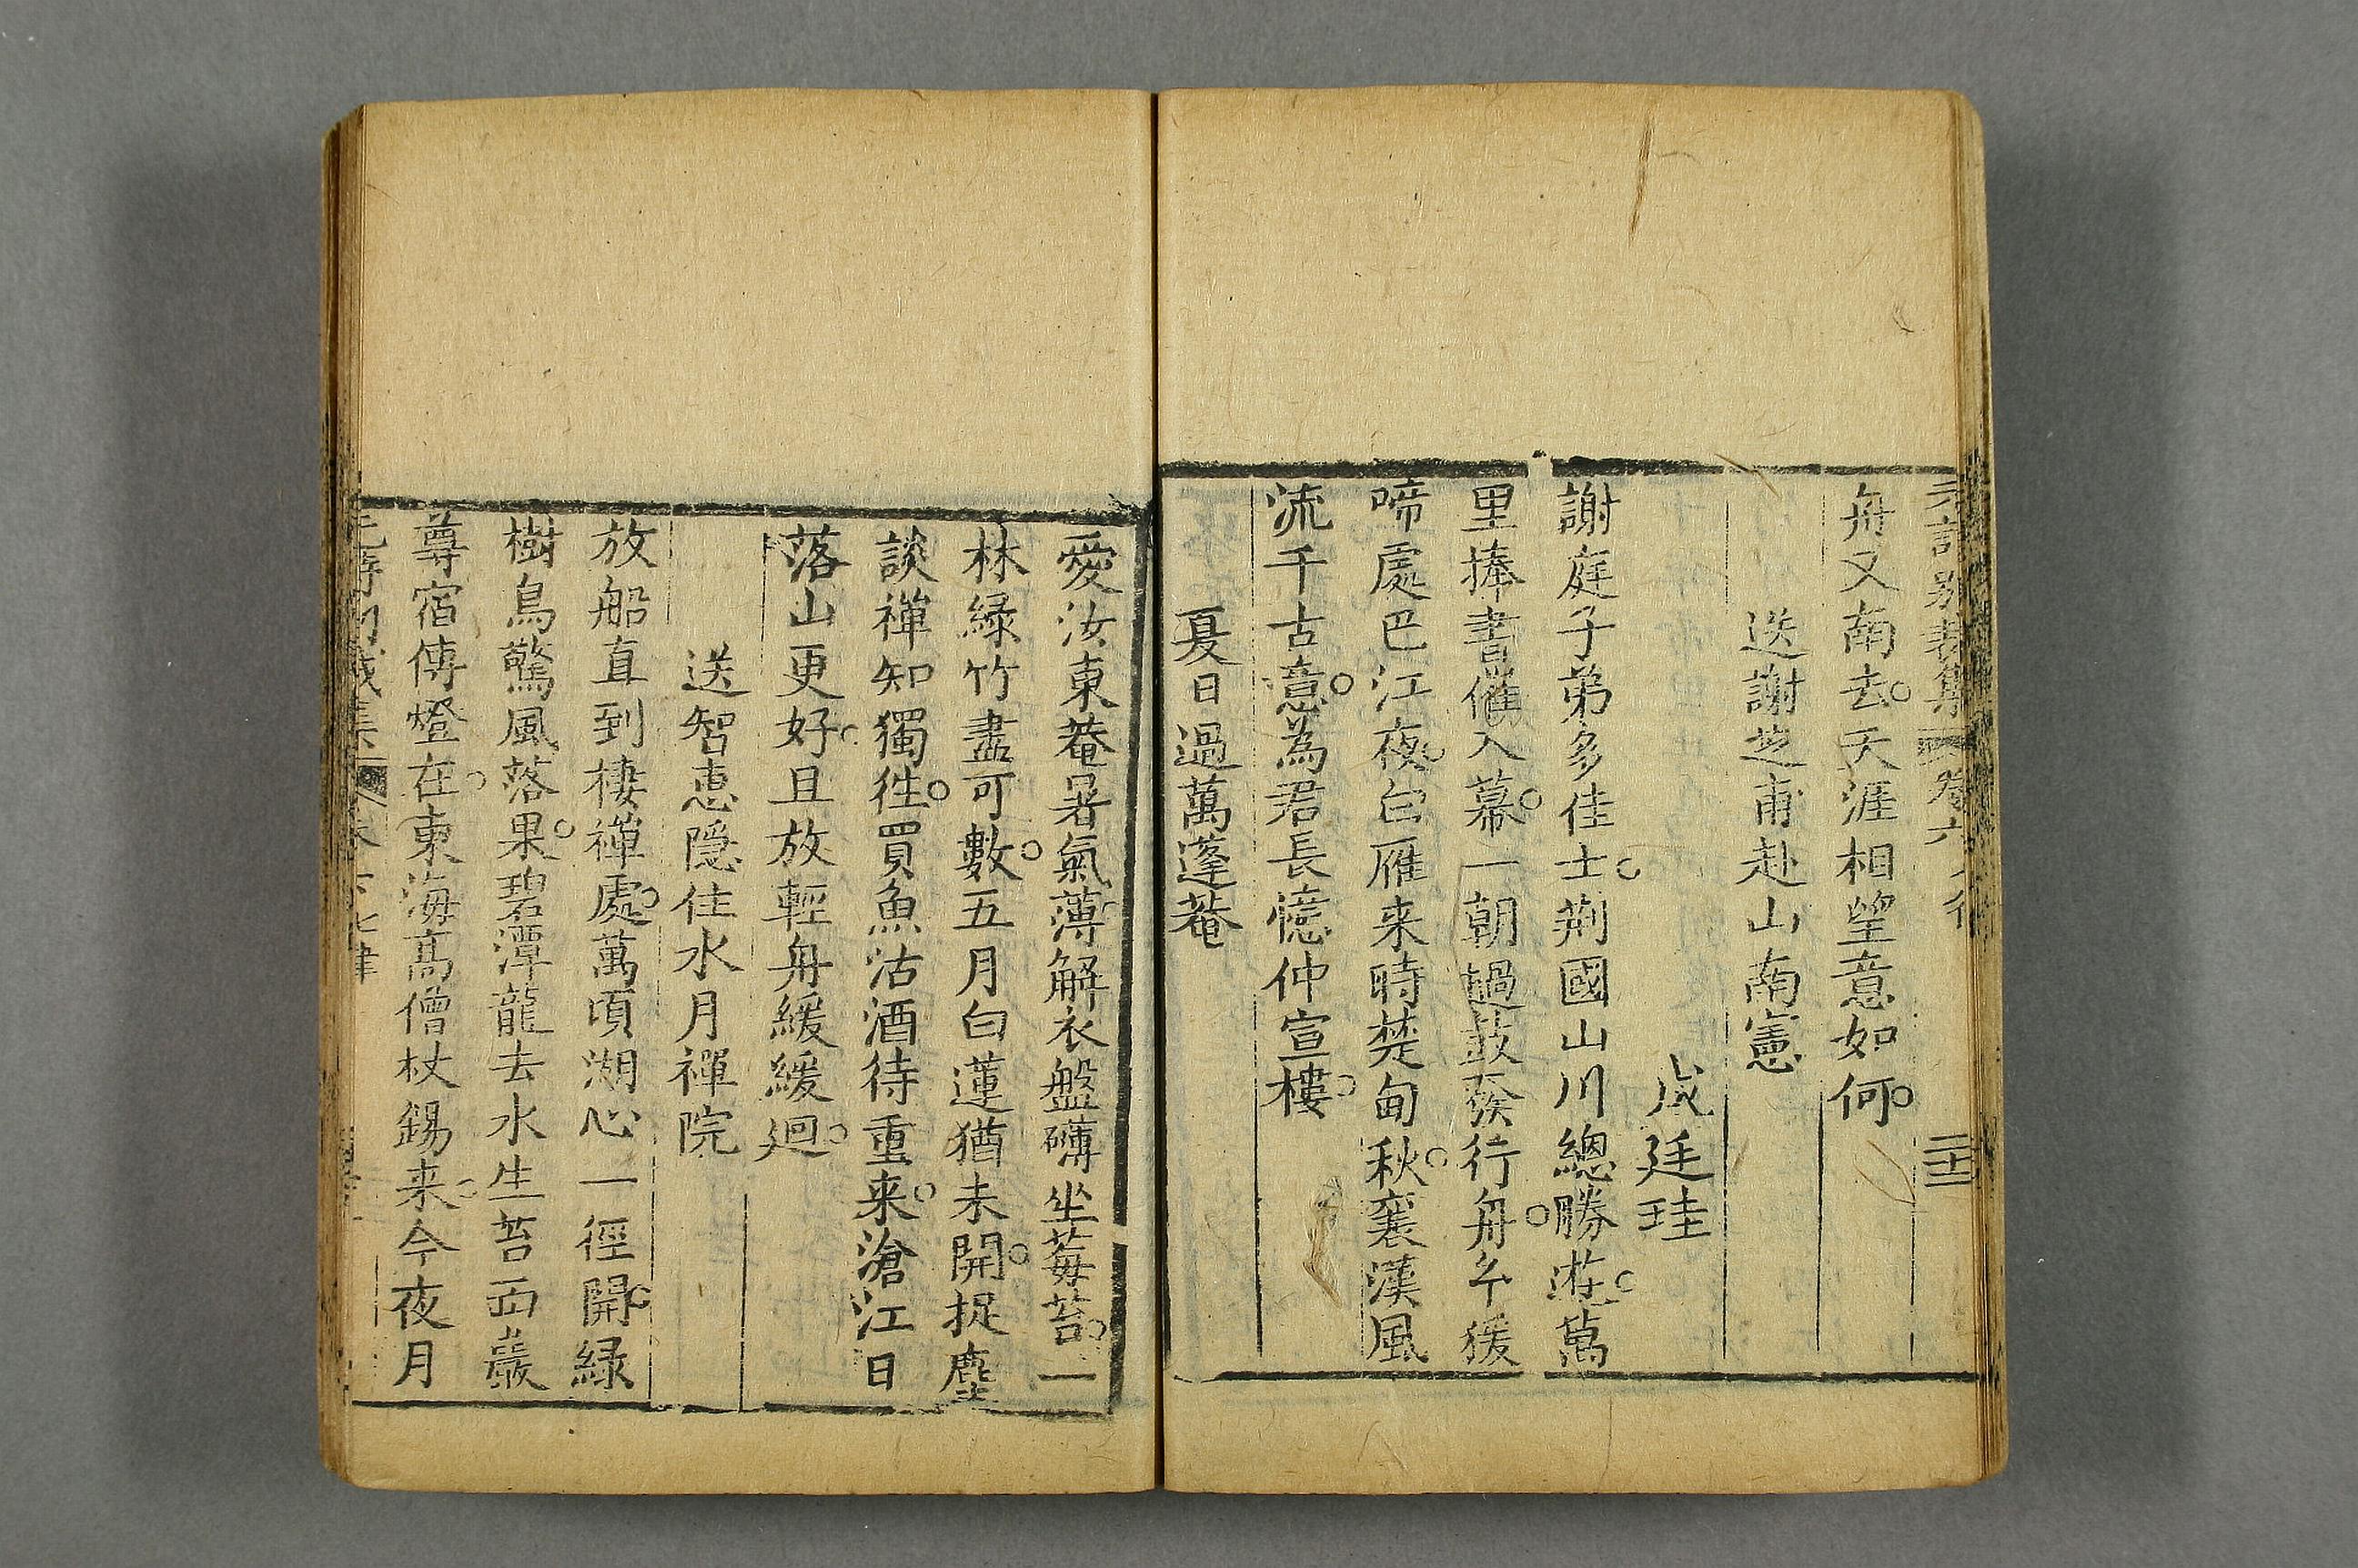 舟又南去天涯相望意如何
送謝芝甫赴山南憲
成廷珪
謝庭子弟多佳士荊國山川總勝遊萬
里捧書催入幕一朝撾鼓發行舟乆猨
啼處巴江夜白雁来時楚甸秋襄漢風
流千古意為君長憶仲宣樓
夏日過萬蓬菴
愛汝東菴暑氣薄解衣盤礴坐莓苔一
林緑竹盡可數五月白蓮猶未開捉麈
談禪知獨徃買魚沽酒待重来滄江日
落山更好且放輕舟緩緩廻
送智惠隠住水月禪院
放船直到棲禪處萬頃湖心一徑開緑
樹鳥驚風落果碧潭龍去水生苔西巖
尊宿傳燈在東海髙僧杖錫来今夜月